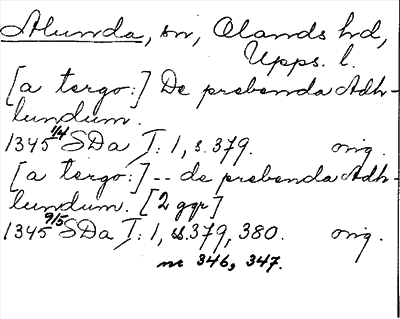 Alunda, sn, Olands hd,
Upps. l.
[a tergo:] De prebenda Adh-
lundum.
1345 1/4 SDa I: 1, s. 379. orig.
[a tergo:] -- de prebenda Adh-
lundum. [2 ggr]
1345 9/5 SDa I: 1, s. 379, 380. orig.
nr 346, 347.